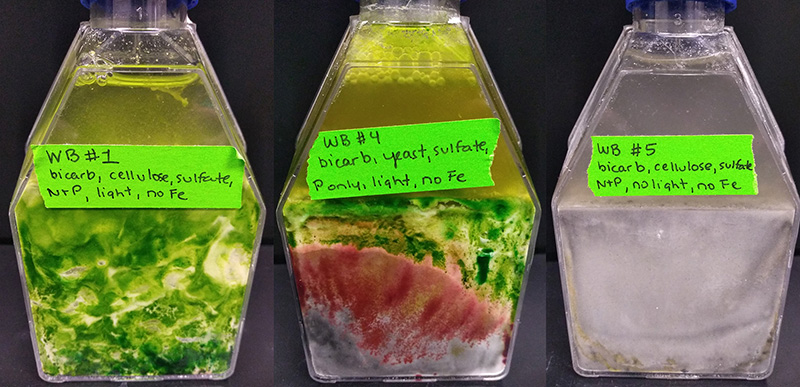 WB #1
bicarb, cellulose, sulfate,
N+P, light, no Fe
WB #4
bicarb, yeast, sulfate,
P only, light, no Fe
3
WB #5
bicarb, cellulose, sulfate
N+P, no light, no Fe